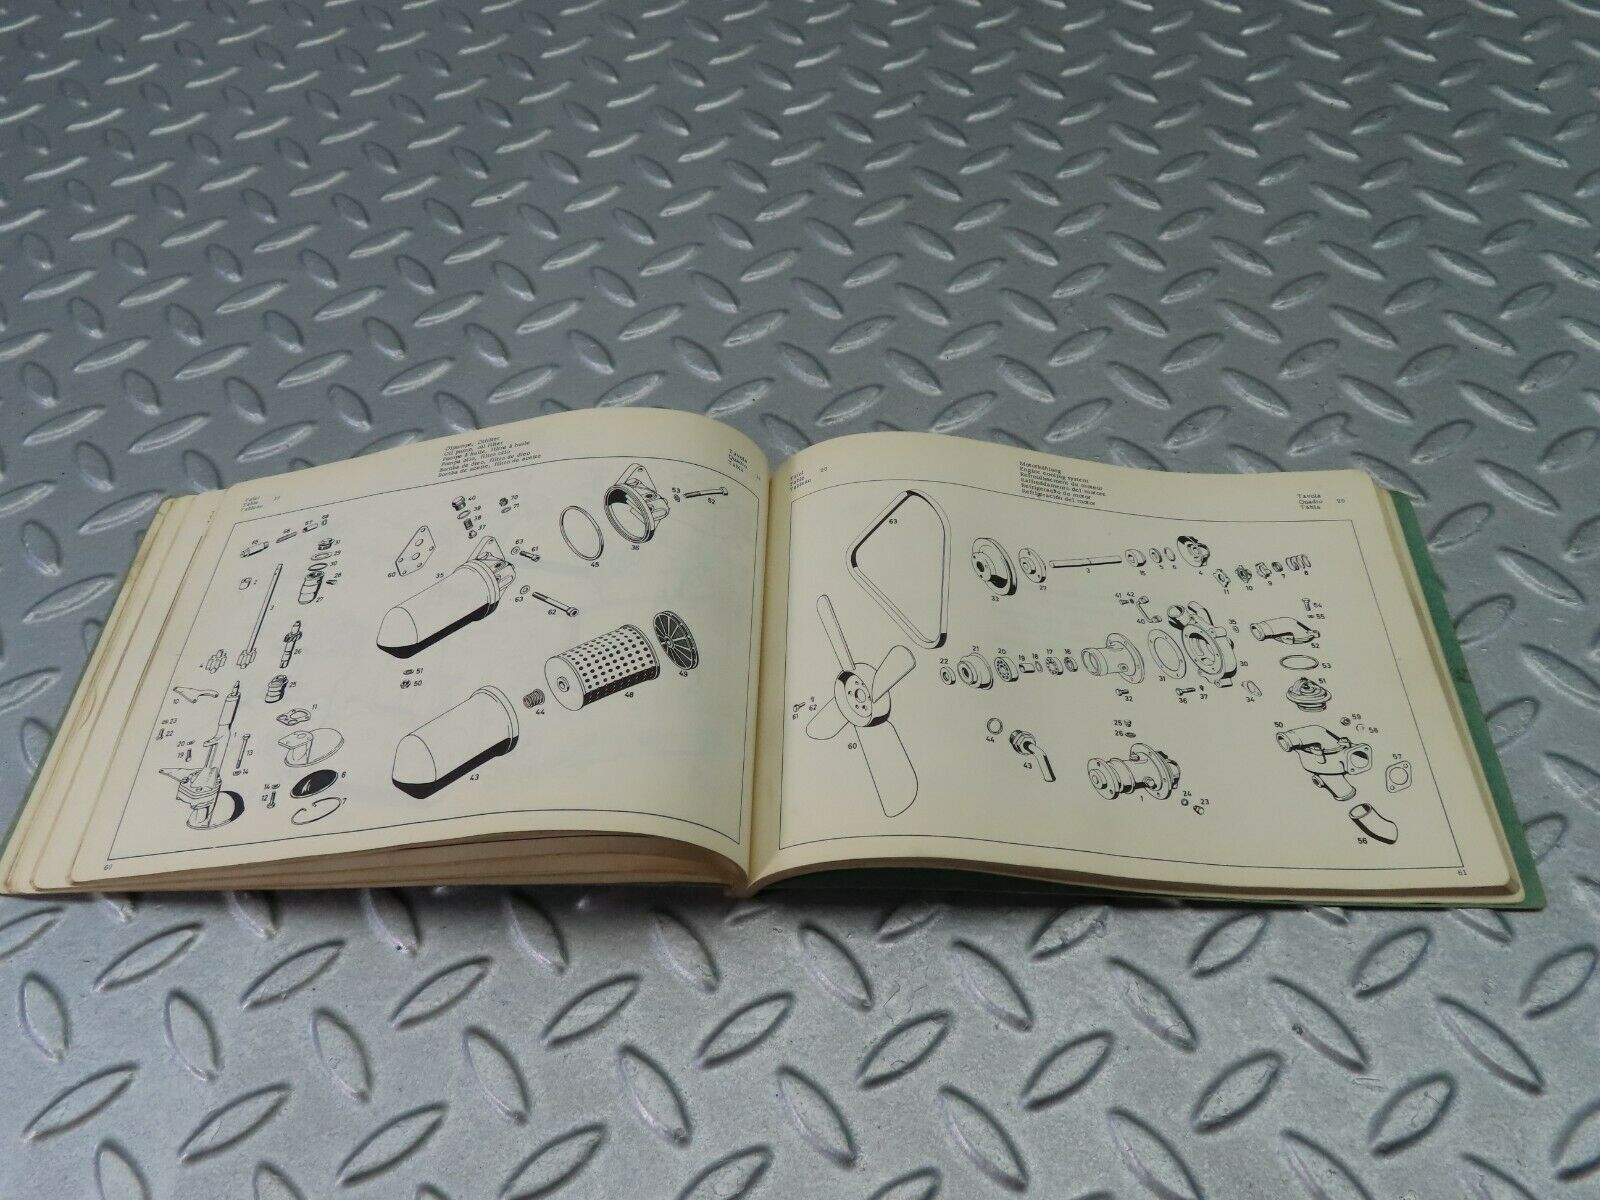 Ölpumpe, Ölfilter
Oil pump, oil filter
Pompe à huile, filtre à huile
Pompa olio, filtro olio
Bomba de óleo, filtro de óleo
Bomba de aceite, filtro de aceite
Tafel
Table
Tableau
Tavola
Quadro
Tabla
68 67 69
65
2
3
4
31
29
30
28
27
26
25
15
23
22
20
19
1
13
14
11
6
7
40
39
38
37
70
71
60
35
63 61
63
62
45
36
53
52
51
50
43
44
48
49
Tafel 20
Table
Tableau
Motorkühlung
Engine cooling system
Refroidissement du moteur
Raffreddamento del motore
Refrigeração do motor
Refrigeración del motor
Tavola
Quadro 20
Tabla
63
33 27 3 15 5 6 4
11 10 9 7 8
41 42
40
35
54
55
52
53
51
22 21 20 19 18 17 16
31
30
32
36 37 34
61 62
60
44
43
25
26
1
24 23
50
59
58
57
56
81